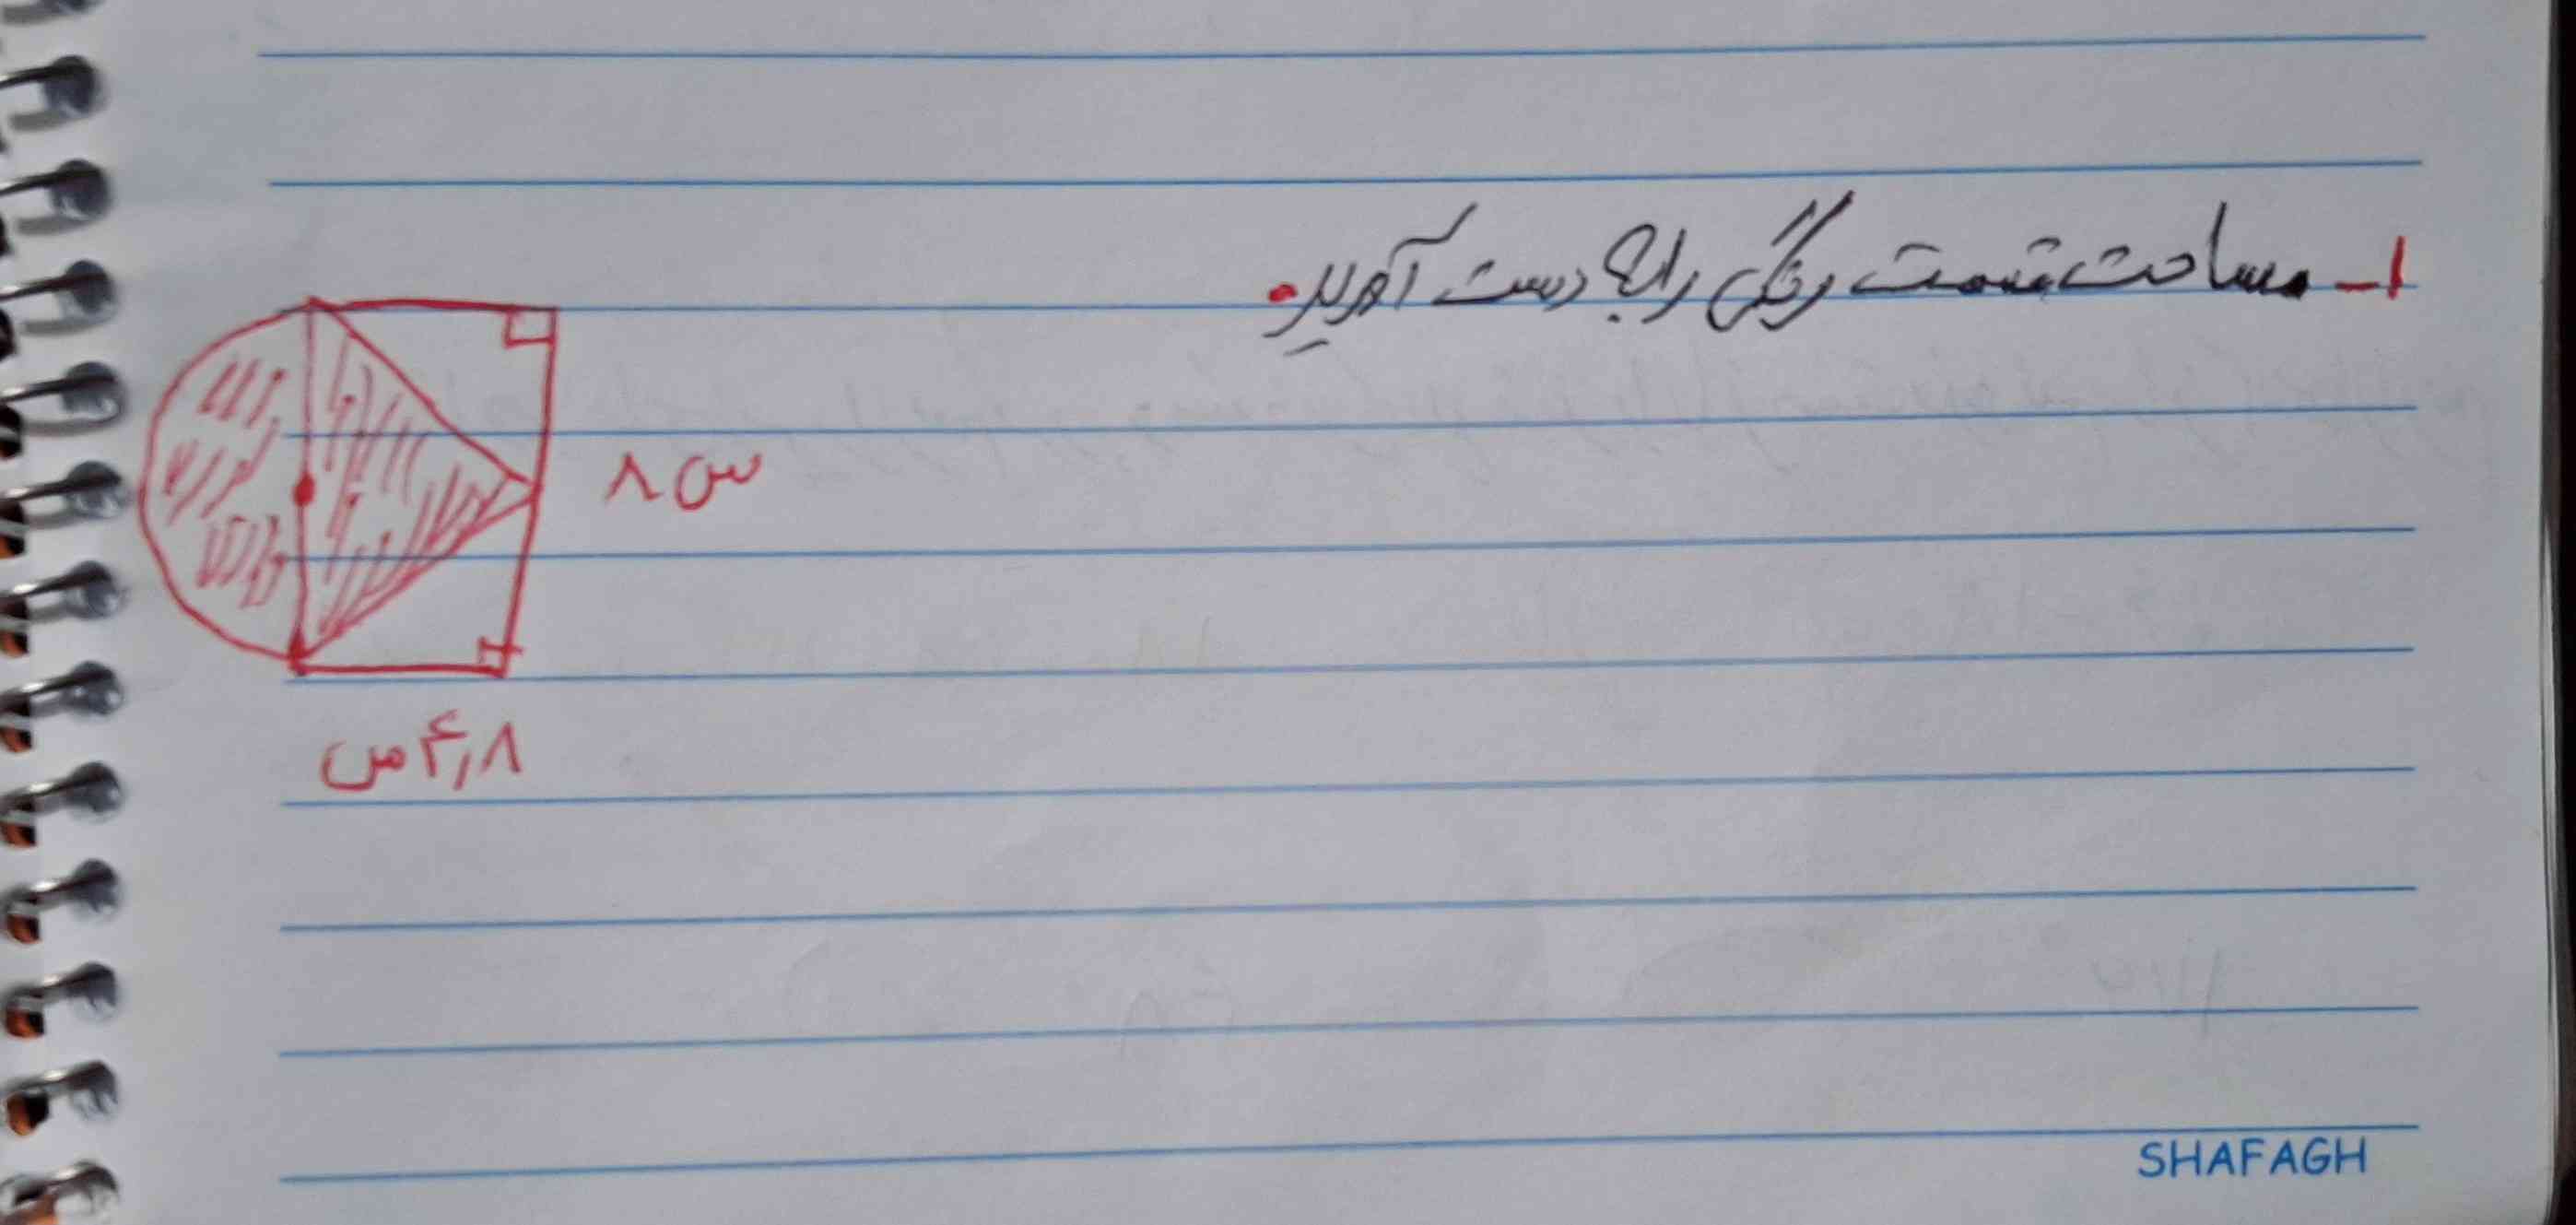 ۱- مساحت قسمت رنگی را به دست آورید.
۸ س
۴٫۸ س
SHAFAGH